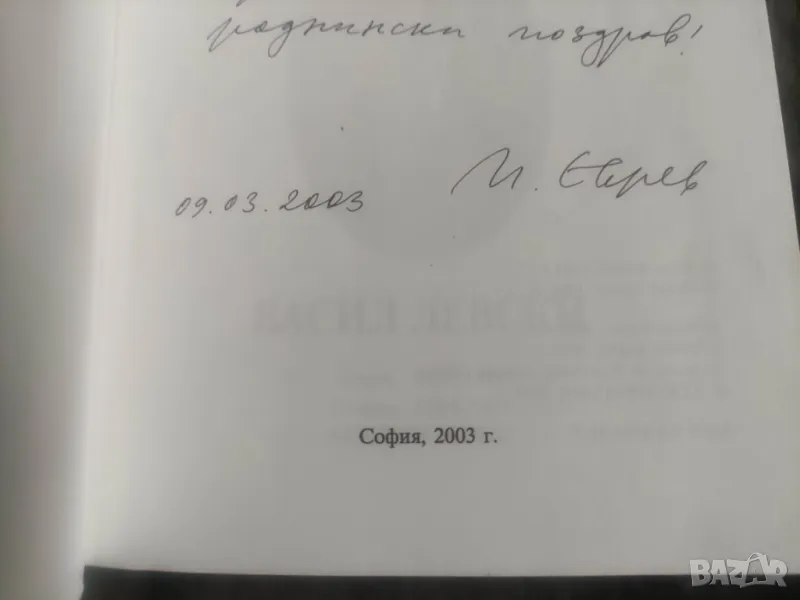 роднински поздрав!
09.03.2003
София, 2003 г.
BAZAR